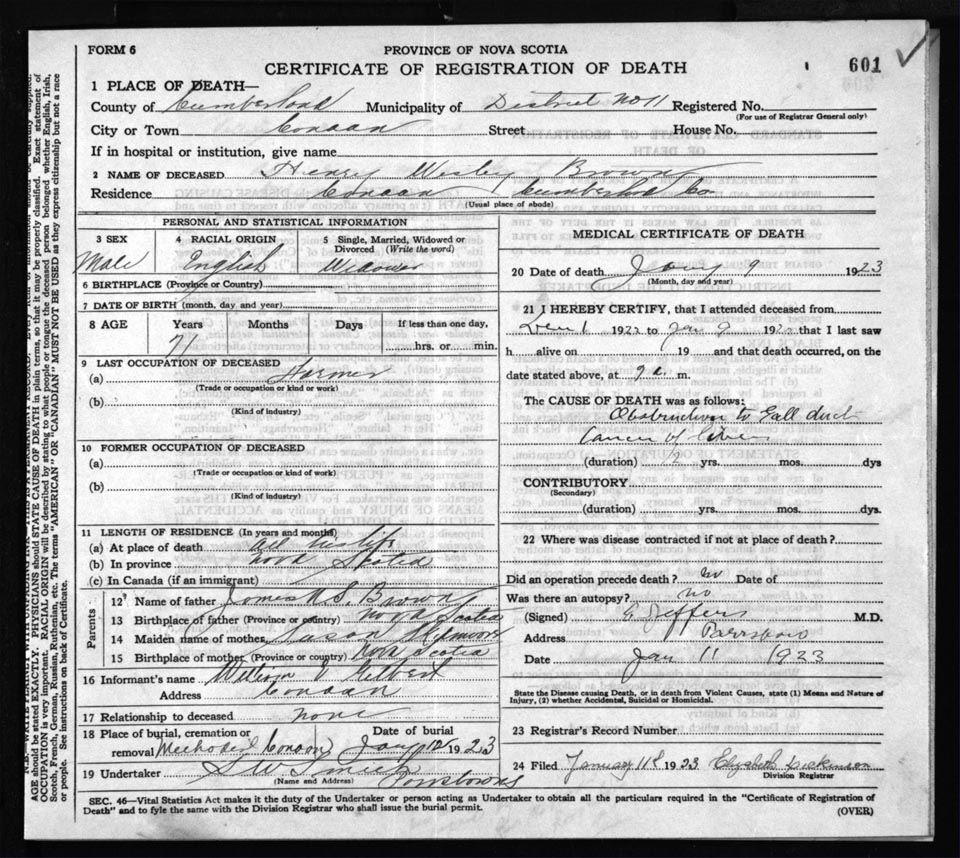 FORM 6
PROVINCE OF NOVA SCOTIA
CERTIFICATE OF REGISTRATION OF DEATH
601
1 PLACE OF DEATH—
County of Cumberland Municipality of District No 11 Registered No.
(For use of Registrar General only)
City or Town Conaan Street House No.
If in hospital or institution, give name
2 NAME OF DECEASED Henry Wesley Brown
Residence Conaan Cumberland Co
(Usual place of abode)
PERSONAL AND STATISTICAL INFORMATION
3 SEX 4 RACIAL ORIGIN 5 Single, Married, Widowed or Divorced (Write the word)
Male English Widower
6 BIRTHPLACE (Province or Country)
7 DATE OF BIRTH (month, day and year)
8 AGE Years Months Days If less than one day,
71 hrs. or min.
9 LAST OCCUPATION OF DECEASED
(a) Farmer
(Trade or occupation or kind or work)
(b)
(Kind of industry)
10 FORMER OCCUPATION OF DECEASED
(a)
(Trade or occupation or kind of work)
(b)
(Kind of industry)
11 LENGTH OF RESIDENCE (In years and months)
(a) At place of death all his life
(b) In province Nova Scotia
(c) In Canada (if an immigrant)
Parents
12 Name of father James Brown
13 Birthplace of father (Province or country) Nova Scotia
14 Maiden name of mother
15 Birthplace of mother (Province or country) Nova Scotia
16 Informant's name William Gilbert
Address Conaan
17 Relationship to deceased none
18 Place of burial, cremation or removal Methodist Conaan Date of burial Jany 12 1923
19 Undertaker
(Name and Address)
MEDICAL CERTIFICATE OF DEATH
20 Date of death Jany 9 1923
(Month, day and year)
21 I HEREBY CERTIFY, that I attended deceased from
Dec 1 1922 to Jan 9 192 that I last saw
h alive on 19 and that death occurred, on the
date stated above, at 9 a. m.
The CAUSE OF DEATH was as follows:
Obstruction to Gall duct
Cancer of Liver
(duration) ½ yrs. mos. dys
CONTRIBUTORY
(Secondary)
(duration) yrs. mos. dys.
22 Where was disease contracted if not at place of death?
Did an operation precede death? no Date of
Was there an autopsy? no
(Signed) Jeffers M.D.
Address Parrsboro
Date Jan 11 1923
State the Disease causing Death, or in death from Violent Causes, state (1) Means and Nature of
Injury, (2) whether Accidental, Suicidal or Homicidal.
23 Registrar's Record Number
24 Filed January 11th 1923 Elizabeth Dickinson
Division Registrar
SEC. 46—Vital Statistics Act makes it the duty of the Undertaker or person acting as Undertaker to obtain all the particulars required in the "Certificate of Registration of
Death" and to fyle the same with the Division Registrar who shall issue the burial permit.
(OVER)
AGE should be stated EXACTLY. PHYSICIANS should STATE CAUSE OF DEATH in plain terms, so that it may be properly classified. Exact statement of
OCCUPATION is very important. RACIAL ORIGIN will be described by stating to what people or tongue the deceased person belonged whether English, Irish,
Scotch, French, German, Russian, Ruthenian, etc. The terms "AMERICAN" OR "CANADIAN" MUST NOT BE USED as they express citizenship but not a race
or people. See instructions on back of Certificate.